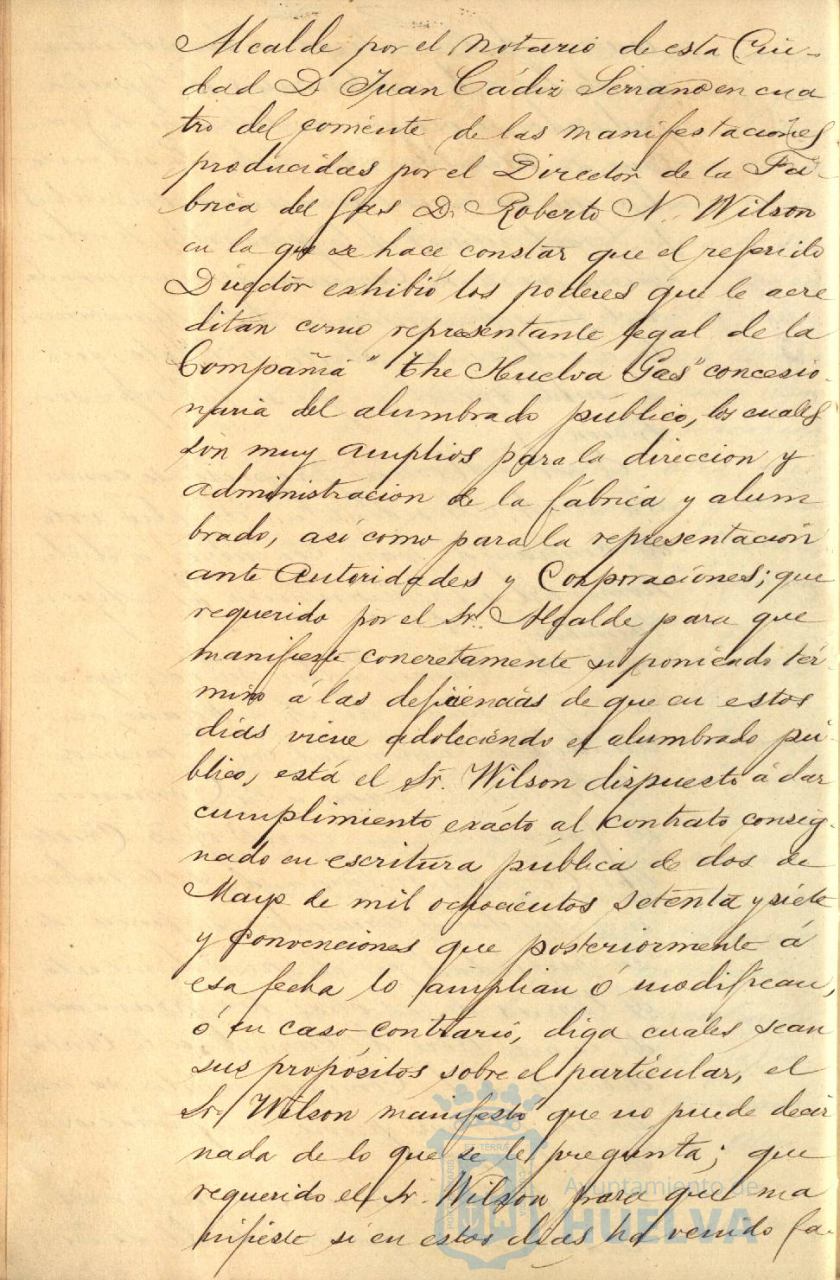 Alcalde por el Notario de esta Ciu-
dad D. Juan Cádiz Serrano en cua
tro del corriente de las manifestaciones
producidas por el Director de la Fá-
brica del Gas D. Roberto N. Wilson
en la que se hace constar que el referido
Director exhibió los poderes que le acre
ditan como representante legal de la
Compañia "The Huelva Gas" concesio-
naria del alumbrado público, los cuales
son muy amplios para la direccion y
administracion de la fábrica y alum
brado, así como para la representación
ante Autoridades y Corporaciones; que
requerido por el Sr. Alcalde para que
manifieste concretamente si poniendo tér-
mino á las deficiencias de que en estos
días viene adoleciendo el alumbrado pú-
blico, está el Sr. Wilson dispuesto á dar
cumplimiento exácto al contrato consig-
nado en escritura pública de dos de
Mayo de mil ochocientos setenta y siete
y convenciones que posteriormente á
esa fecha lo amplian ó modifican,
ó en caso contrario, diga cuales sean
sus propósitos sobre el particular, el
Sr. Wilson manifestó que no puede decir
nada de lo que se le pregunta; que
requerido el Sr. Wilson para que ma
nifieste si en estos dias ha venido fa-
Ayuntamiento de
HUELVA